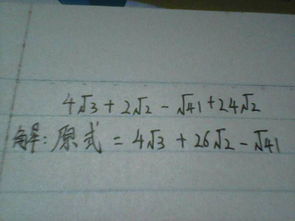 4√3+2√2-√41+24√2
解:原式=4√3+26√2-√41